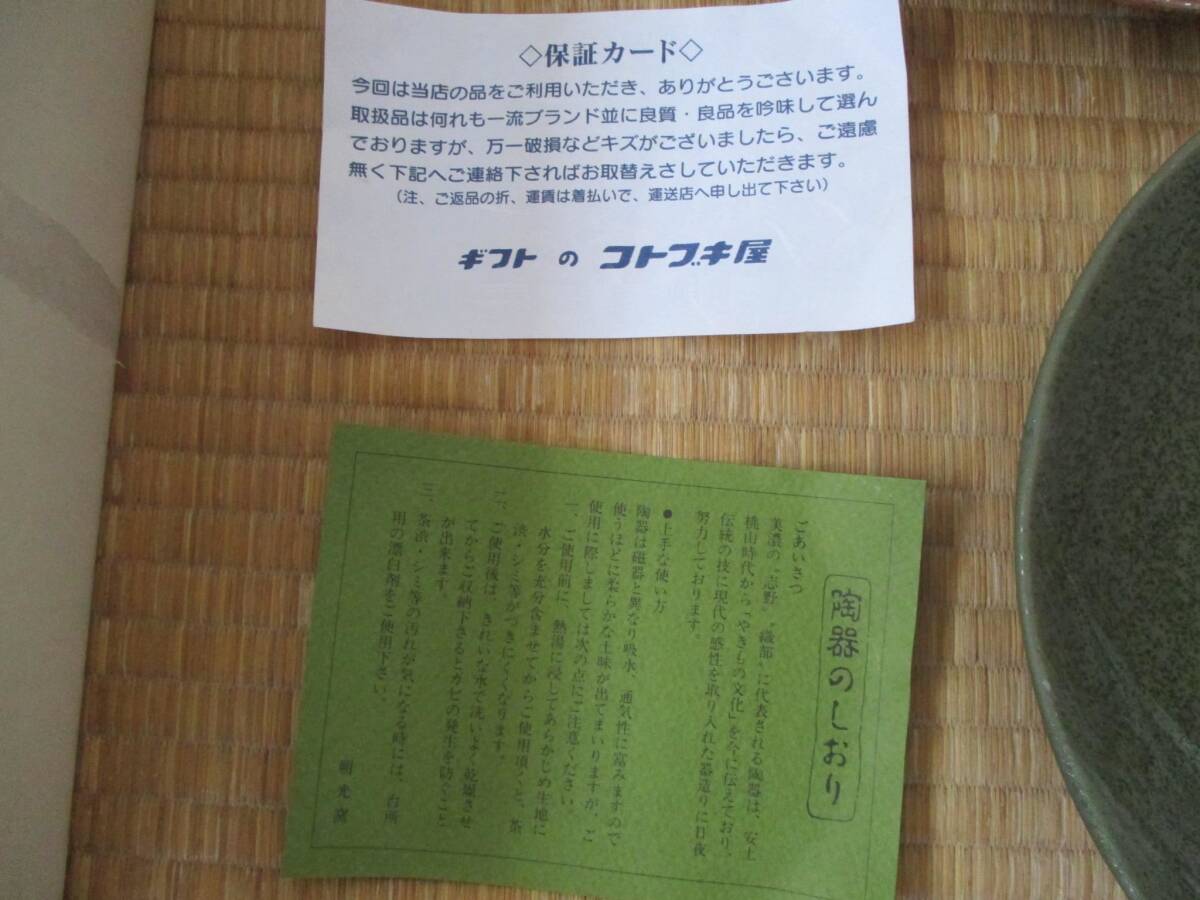 ◇保証カード◇
今回は当店の品をご利用いただき、ありがとうございます。
取扱品は何れも一流ブランド並に良質・良品を吟味して選ん
でおりますが、万一破損などキズがございましたら、ご遠慮
無く下記へご連絡下さればお取替えさしていただきます。
(注、ご返品の折、運賃は着払いで、運送店へ申し出て下さい)
ギフトの コトブキ屋
陶器のしおり
ごあいさつ
美濃の〝志野〟〝織部〟に代表される陶器は、安土
桃山時代から「やきもの文化」を今に伝えており、
伝統の技に現代の感性を取り入れた器造りに日夜
努力しております。
●上手な使い方
陶器は磁器と異なり吸水、通気性に富みますので
使うほどに柔らかな土味が出てまいりますが、ご
使用に際しましては次の点にご注意ください。
一、ご使用前に、熱湯に浸してあらかじめ生地に
水分を充分含ませてからご使用頂くと、茶
渋・シミ等がつきにくくなります。
二、ご使用後は、きれいな水で洗いよく乾燥させ
てからご収納下さるとカビの発生を防ぐこと
が出来ます。
三、茶渋・シミ等の汚れが気になる時には、台所
用の漂白剤をご使用下さい。
光窯